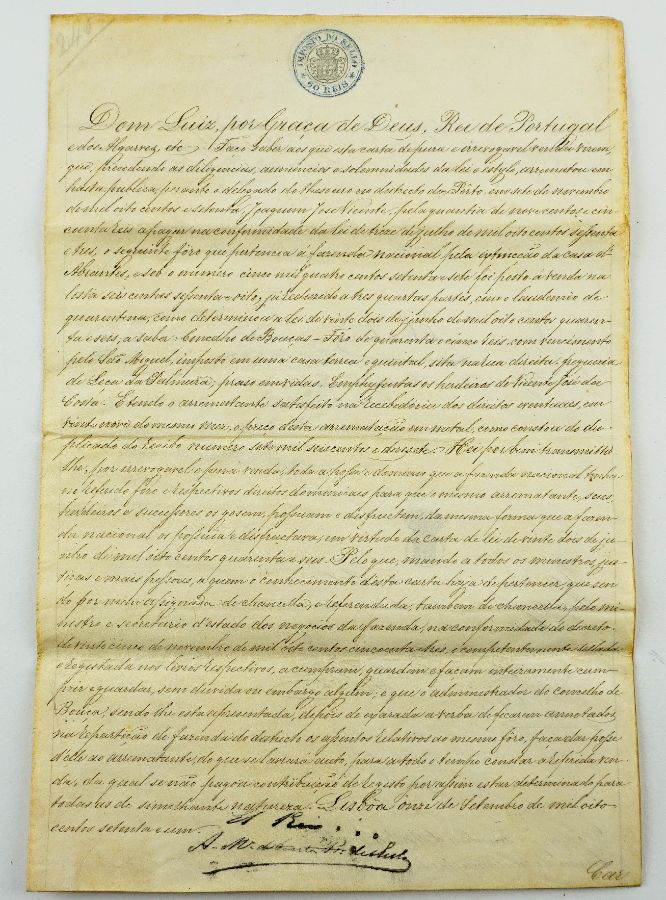 240
IMPOSTO DO SELLO
60 REIS
Dom Luiz, por Graça de Deus, Rei de Portugal
e dos Algarves, etc. Faço saber aos que esta carta de pura e irrevogavel venda virem,
que, precedendo as diligencias, annuncios e solemnidades da lei e estylo, arrematou em
hasta publica perante o delegado do thesouro no districto do Porto em sete de novembro
de mil oito centos e setenta, Joaquim José Vicente, pela quantia de nove centos e cin
coenta réis a pagar na conformidade da lei de treze de julho de mil oito centos sessenta
e tres, o seguinte fôro que pertencia á fazenda nacional pela extincção da casa d'
Abrantes, e sob o numero cinco mil quatro centos setenta e sete foi posto á venda na
lista seis centas sessenta e oito, já reduzido a tres quartas partes, com o laudemio de
quarentena, como determinou a lei de vinte dois de junho de mil oito centos quaren-
ta e seis, a saber: Concelho de Bouças - Fôro de quarenta e cinco réis, com vencimento
pelo São Miguel, imposto em uma casa terrea e quintal, sita na rua direita, freguezia
de Leça da Palmeira; praso em vidas. Emphyteutas os herdeiros de Vicente José da
Costa. E tendo o arrematante satisfeito na recebedoria dos direitos eventuaes, em
vinte nove do mesmo mez, o preço desta arrematação em metal, como constou do du-
plicado do recibo numero sete mil seis centos e dezesete: Hei por bem transmittir-
lhe, por irrevogavel e pura venda, toda a posse e dominio que a fazenda nacional tinha
no referido fôro e respectivos direitos dominicaes para que o mesmo arrematante, seus
herdeiros e successores os gosem, possuam e disfructem, da mesma fórma que a fazen-
da nacional os possuia e disfructava, em virtude da carta de lei de vinte dois de ju-
nho de mil oito centos quarenta e seis. Pelo que, mando a todos os ministros, jus-
tiças e mais pessoas, a quem o conhecimento desta carta haja de pertencer, que sen-
do por mim assignada de chancella, e referendada, tambem de chancella, pelo mi-
nistro e secretario d'estado dos negocios da fazenda, na conformidade do decreto
de vinte cinco de novembro de mil oito centos cincoenta e tres, e competentemente sellada
e registada nos livros respectivos, a cumpram, guardem e façam inteiramente cum-
prir e guardar, sem duvida ou embargo algum; e que o administrador do concelho de
Bouças, sendo-lhe esta apresentada, depois de exarada a verba de ficarem annotados
na repartição de fazenda do districto os assentos relativos ao mesmo fôro, faça dar posse
d'elle ao arrematante, do que se lavrará auto, para a todo o tempo constar a referida ven-
da, da qual se não pagou contribuição de registo por assim estar determinado para
todas as de similhante natureza. Lisboa onze de Setembro de mil oito-
centos setenta e um.
El Rei
Car